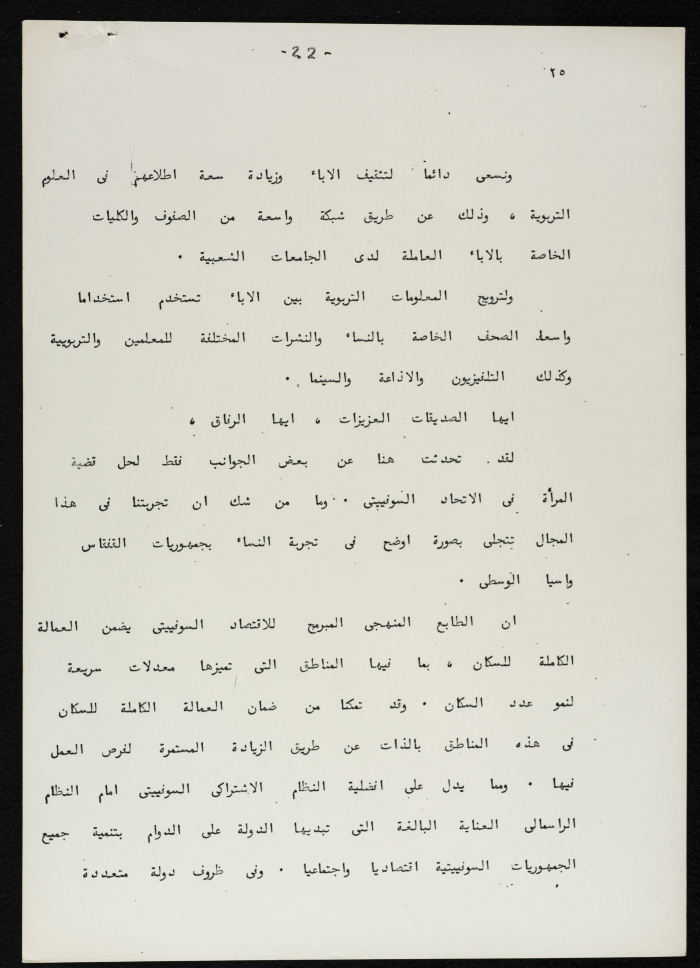 -22-
٢٥
ونسعى دائما لتثقيف الاباء وزيادة سعة اطلاعهم فى العلوم
التربوية ، وذلك عن طريق شبكة واسعة من الصفوف والكليات
الخاصة بالاباء العاملة لدى الجامعات الشعبية ٠
ولترويج المعلومات التربوية بين الاباء تستخدم استخداما
واسعا الصحف الخاصة بالنساء والنشرات المختلفة للمعلمين والتربويية
وكذلك التلفيزيون والاذاعة والسينما ٠
ايها الصديقات العزيزات ، ايها الرفاق ،
لقد تحدثت هنا عن بعض الجوانب فقط لحل قضية
المرأة فى الاتحاد السوفييتى ٠ وما من شك ان تجربتنا فى هذا
المجال تتجلى بصورة اوضح فى تجربة النساء بجمهوريات القفقاس
واسيا الوسطى ٠
ان الطابع المنهجى المبرمج للاقتصاد السوفييتى يضمن العمالة
الكاملة للسكان ، بما فيها المناطق التى تميزها معدلات سريعة
لنمو عدد السكان ٠ وقد تمكنا من ضمان العمالة الكاملة للسكان
فى هذه المناطق بالذات عن طريق الزيادة المستمرة لفرص العمل
فيها ٠ ومما يدل على افضلية النظام الاشتراكى السوفييتى امام النظام
الراسمالى العناية البالغة التى تبديها الدولة على الدوام بتنمية جميع
الجمهوريات السوفييتية اقتصاديا واجتماعيا ٠ وفى ظروف دولة متعددة